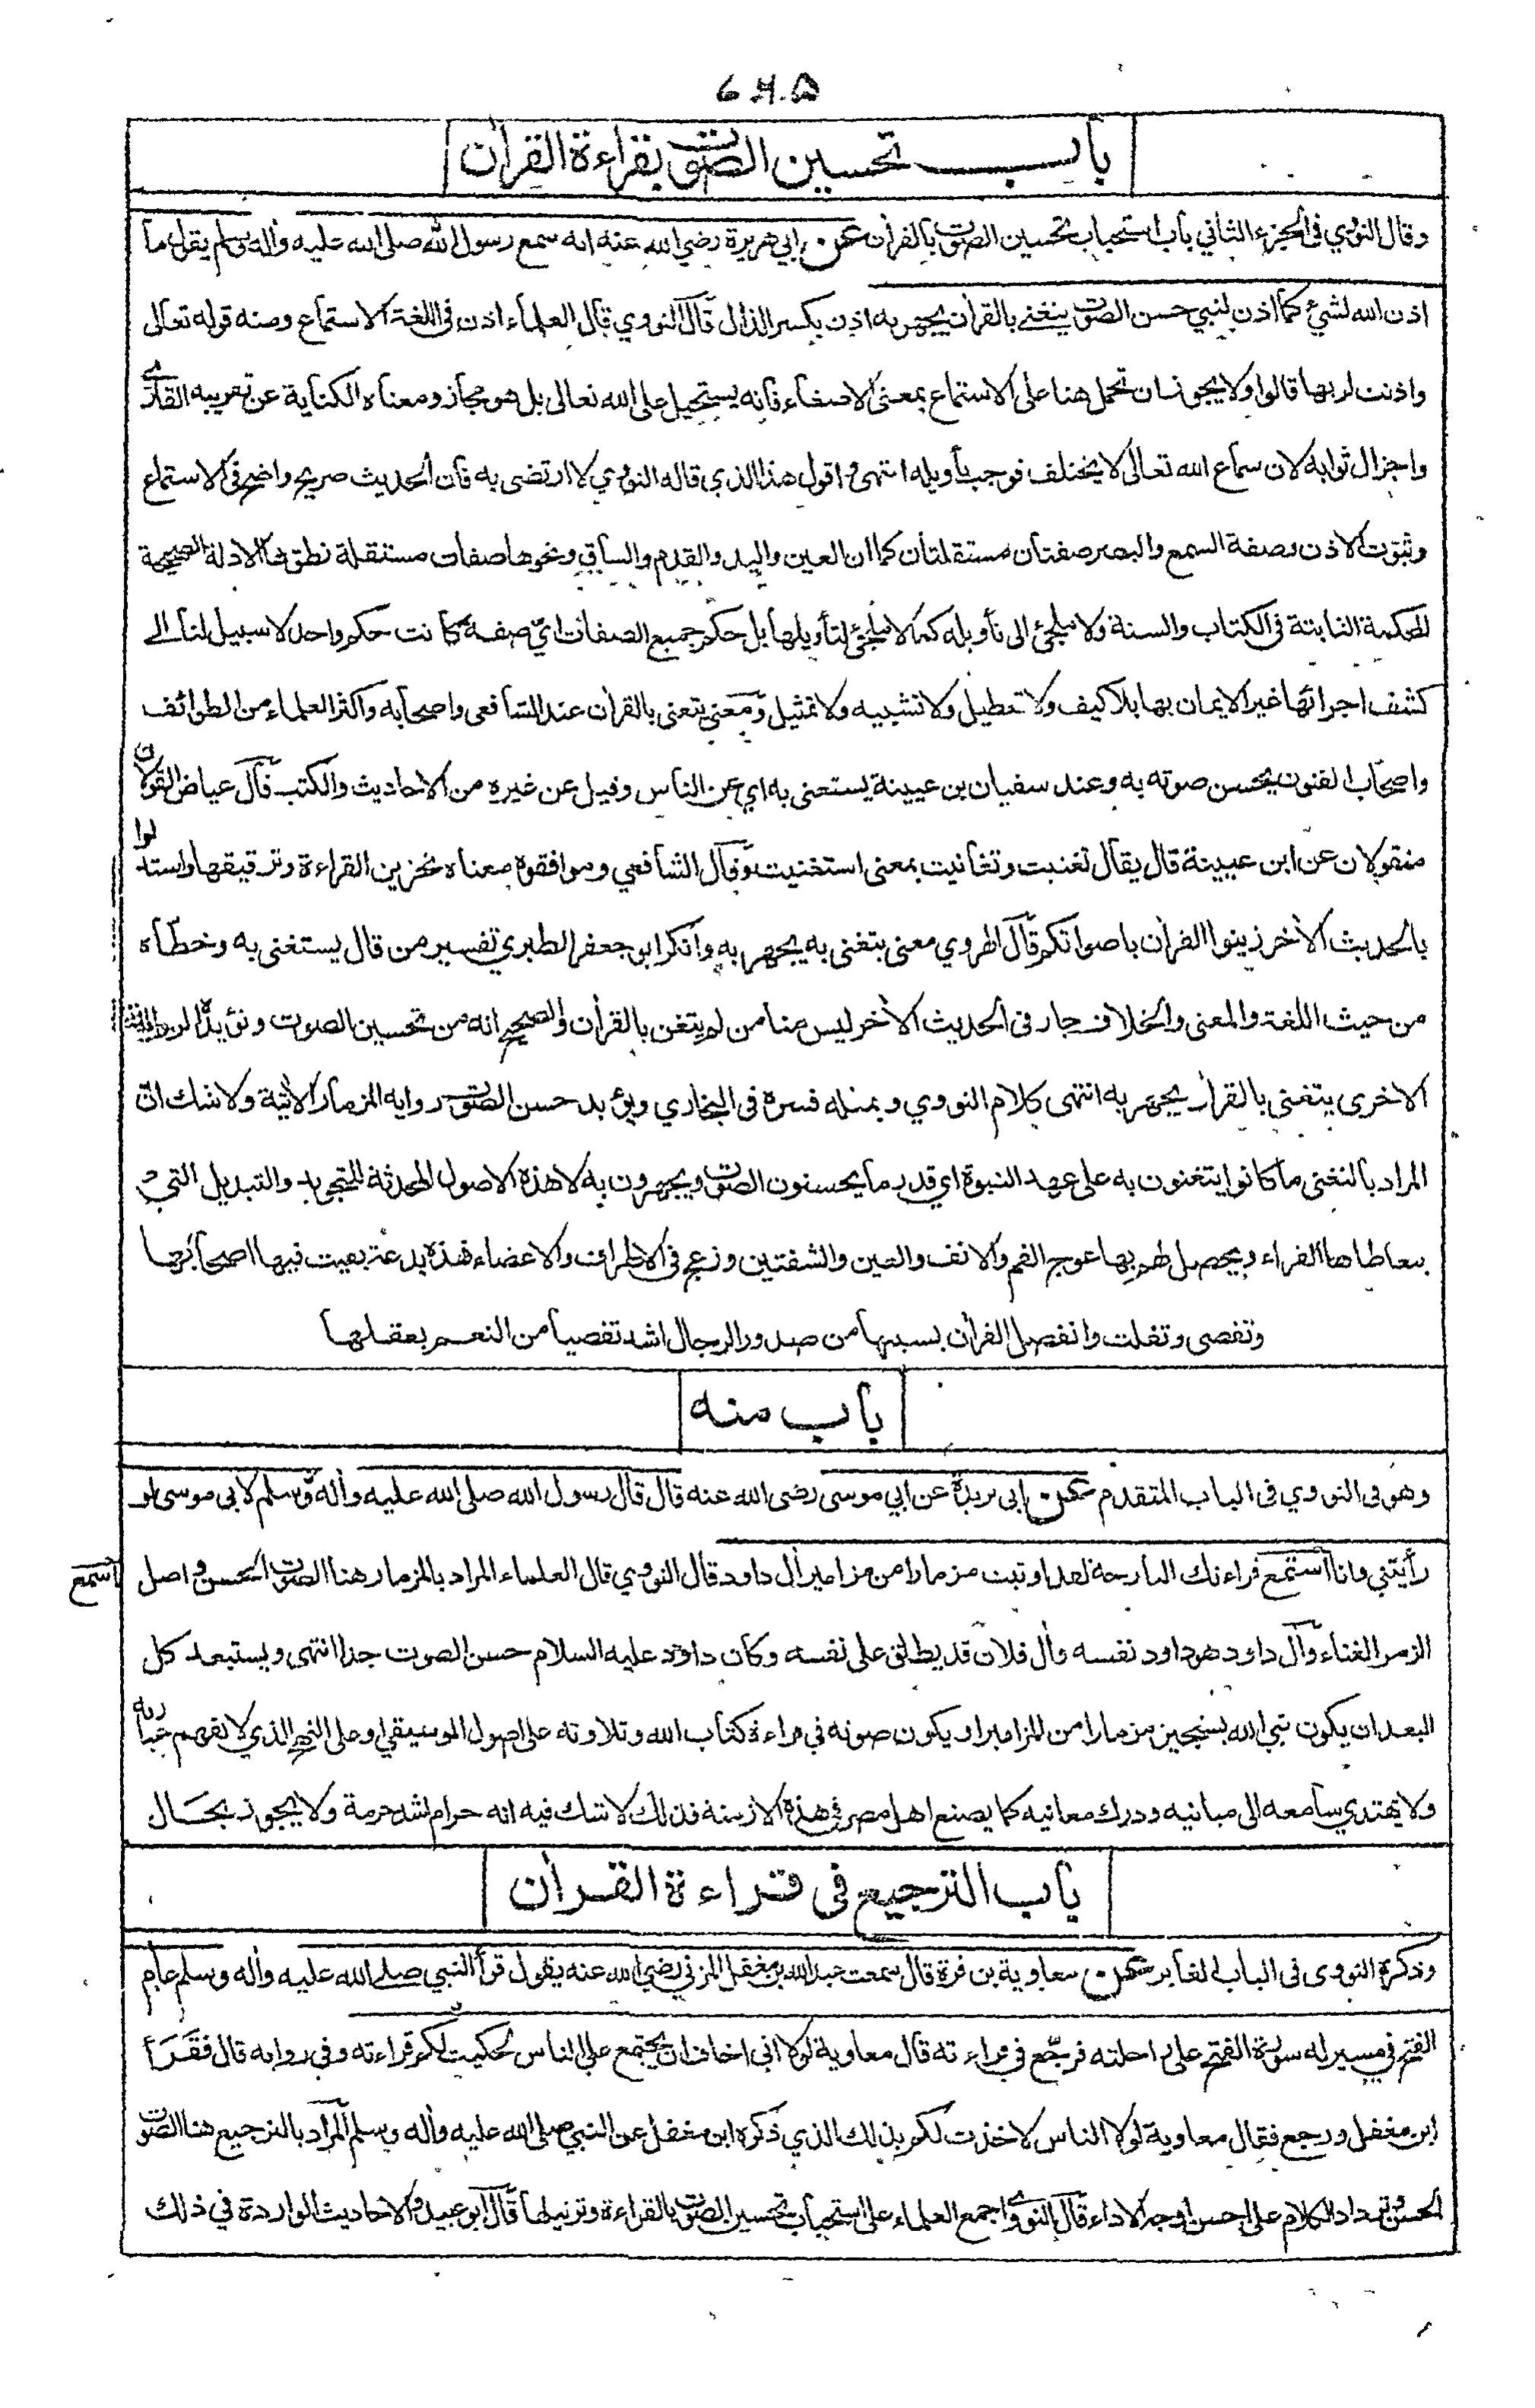 باب تحسين الصوت بقراءة القرأن
وقال النووي فى الجزء الثاني باب استحباب تحسين الصوت بالقرأن عن ابي هريرة رضي الله عنه انه سمع رسول الله صلى الله عليه وأله وسلم يقول ما
اذن الله لشيء كما أذن لنبي حسن الصوت يتغنى بالقرأن يجهر به اذن بكسر الذال قال النووي قال العلماء اذن فى اللغة الاستماع ومنه قوله تعالى
واذنت لربها قالوا ولا يجوز ان تحمل هنا على الاستماع بمعنى الاصغاء فأنه يستحيل على الله تعالى بل هو مجاز ومعناه الكناية عن تقريبه القارئ
واجزال ثوابه لان سماع الله تعالى لا يختلف فوجب تأويله انتهى واقول هذا الذي قاله النووي لا ارتضى به فان الحديث صريح واضح فى الاستماع
وثبوت الاذن وصفة السمع والبصر صفتان مستقلتان كما ان العين واليد والقدم والساق ونحوها صفات مستقلة نطق بها الادلة الصحيحة
المحكمة الثابتة فى الكتاب والسنة ولا ملجئ الى تأويله كما لا ملجئ لتأويلها بل حكم جميع الصفات اي صفة كانت حكم واحد لا سبيل لنا الى
كشف اجرائها غير الايمان بها بلا كيف ولا تعطيل ولا تشبيه ولا تمثيل ومعنى يتغنى بالقرأن عند الشافعي واصحابه واكثر العلماء من الطوائف
واصحاب الفنون يحسن صوته به وعند سفيان بن عيينة يستغنى به اي عن الناس وقيل عن غيره من الاحاديث والكتب قال عياض القولان
منقولان عن ابن عيينة قال يقال تغنيت وتغانيت بمعنى استغنيت وقال الشافعي وموافقوه معناه تحزين القراءة وترقيقها واستدلوا
بالحديث الأخر زينوا القرأن باصواتكم قال الهروي معنى يتغنى به يجهر به وأنكر ابو جعفر الطبري تفسير من قال يستغنى به وخطّأه
من حيث اللغة والمعنى والخلاف جار فى الحديث الأخر ليس منا من لم يتغن بالقرأن والصحيح انه من تحسين الصوت ويؤيده الرواية
الاخرى يتغنى بالقرأن يجهر به انتهى كلام النووي وبمثله فسره فى البخاري ويؤيد حسن الصوت رواية المزمار الأتية ولا شك ان
المراد بالتغنى ما كانوا يتغنون به على عهد النبوة اي قدر ما يحسنون الصوت ويجهرون به لا هذه الاصول المحدثة للتجويد والتبديل التي
يتعاطاها القراء ويحصل لهم بها عوج الفم والانف والعين والشفتين وزعج فى الاطراف والاعضاء فهذه بدعة بقيت فيها اصحابها
وتفصى وتفلت وانفصل القرأن بسببها من صدور الرجال اشد تفصيا من النعم بعقلها
باب منه
وهو فى النووي فى الباب المتقدم عن ابى بردة عن ابي موسى رضى الله عنه قال قال رسول الله صلى الله عليه وأله وسلم لابى موسى لو
رأيتني وانا استمع قراءتك البارحة لقد اوتيت مزمارا من مزامير أل داود قال النووي قال العلماء المراد بالمزمار هنا الصوت الحسن واصل
اسمع
الزمر الغناء وأل داود هو داود نفسه وأل فلان قد يطلق على نفسه وكان داود عليه السلام حسن الصوت جدا انتهى ويستبعد كل
البعد ان يكون نبي الله يستحين مزمارا من المزامير او يكون صوته في قراءة كتاب الله وتلاوته على اصول الموسيقى او على النهج الذي لا تفهم عبارته
ولا يهتدي سامعه الى مبانيه ودرك معانيه كما يصنع اهل مصر فى هذه الازمنة فذلك لا شك فيه انه حرام اشد حرمة ولا يجوز بحال
باب الترجيع فى قراءة القرأن
وذكره النووى فى الباب الغابر عن معاوية بن قرة قال سمعت عبد الله بن مغفل المزني رضي الله عنه يقول قرأ النبي صلى الله عليه وأله وسلم عام
الفتح في مسير له سورة الفتح على راحلته فرجّع في قراءته قال معاوية لولا اني اخاف ان يجتمع علي الناس لحكيت لكم قراءته وفي رواية قال فقرأ
ابن مغفل ورجع فقال معاوية لولا الناس لاخذت لكم بذلك الذي ذكره ابن مغفل عن النبي صلى الله عليه وأله وسلم المراد بالترجيع هنا الصوت
الحسن وترداد الكلام على احسن اوجه الاداء قال النووي اجمع العلماء على استحباب تحسين الصوت بالقراءة وترتيلها قال ابو عبيد والاحاديث الواردة في ذلك